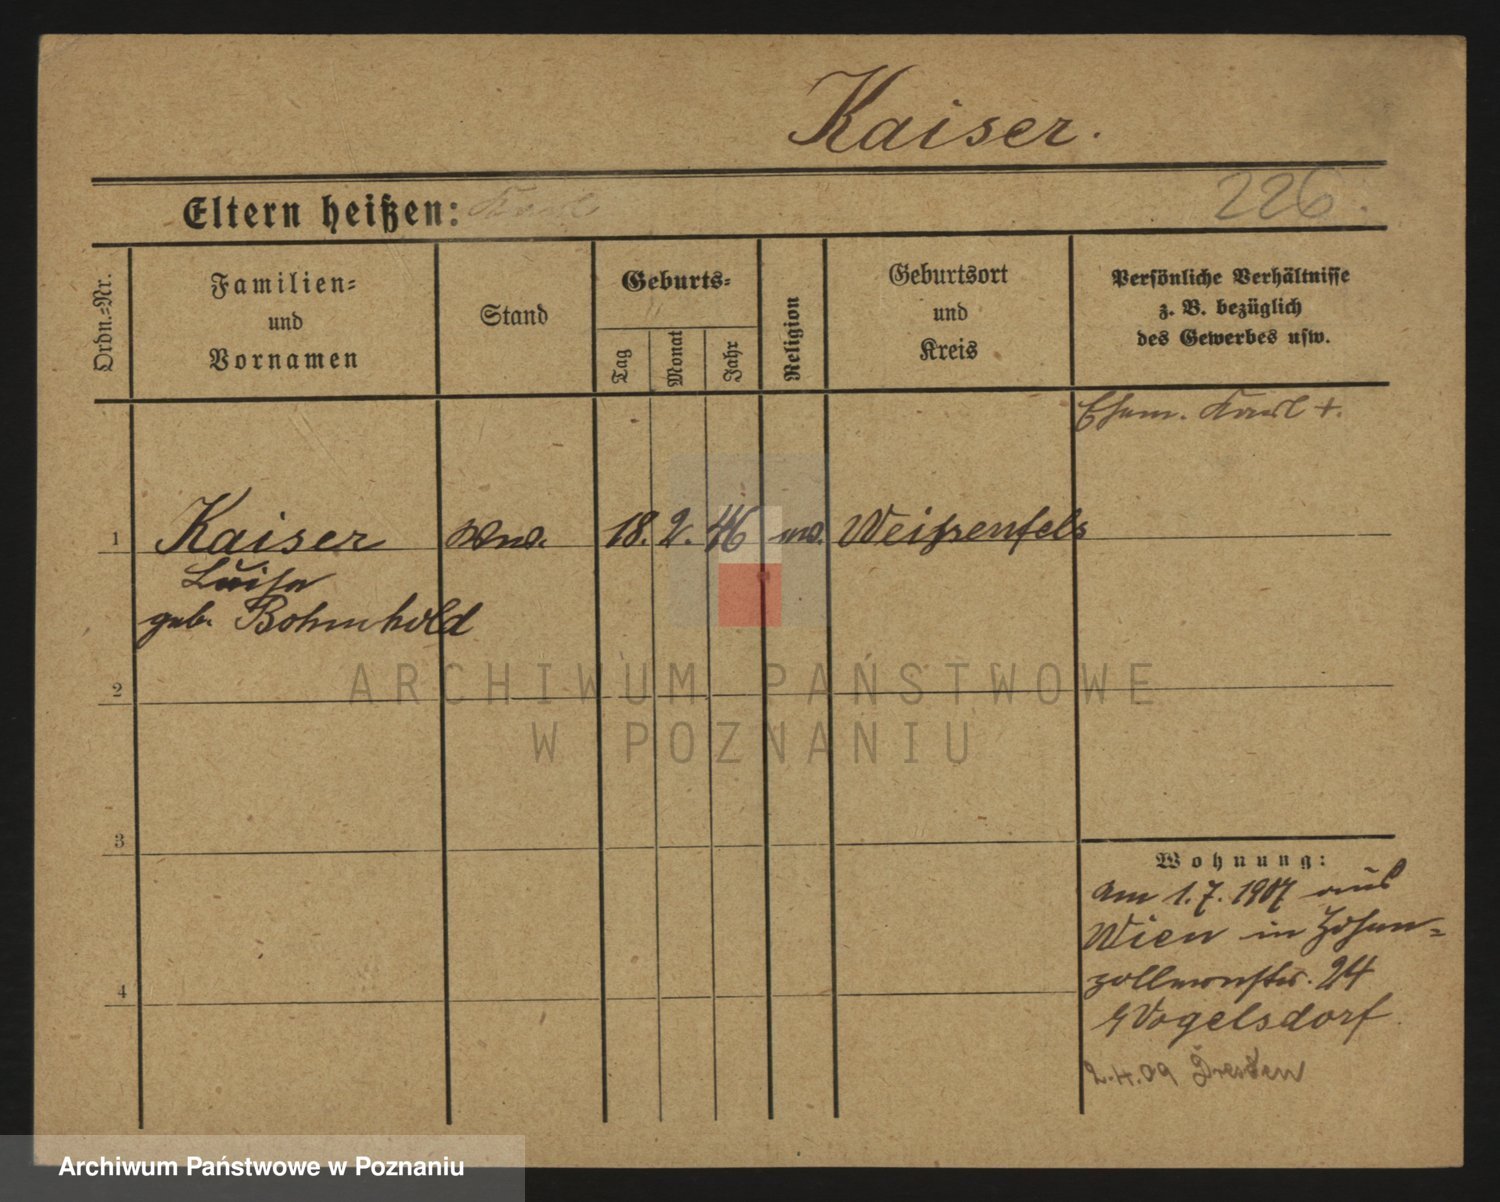 Kaiser.
Eltern heißen: Karl
226.
Ordn.-Nr.
Familien-
und
Vornamen
Stand
Geburts-
Tag
Monat
Jahr
Religion
Geburtsort
und
Kreis
Persönliche Verhältnisse
z. B. bezüglich
des Gewerbes usw.
Ehem. Karl +.
1 Kaiser Ww. 18. 2. 46 ev. Weißenfels
Luise
geb. Bohmhold
2
3
4
Wohnung:
am 1. 7. 1907 aus
Wien in Hohen-
zollernstr. 24
b/Vogelsdorf
2.4.09 Dresden
ARCHIWUM PAŃSTWOWE
W POZNANIU
Archiwum Państwowe w Poznaniu